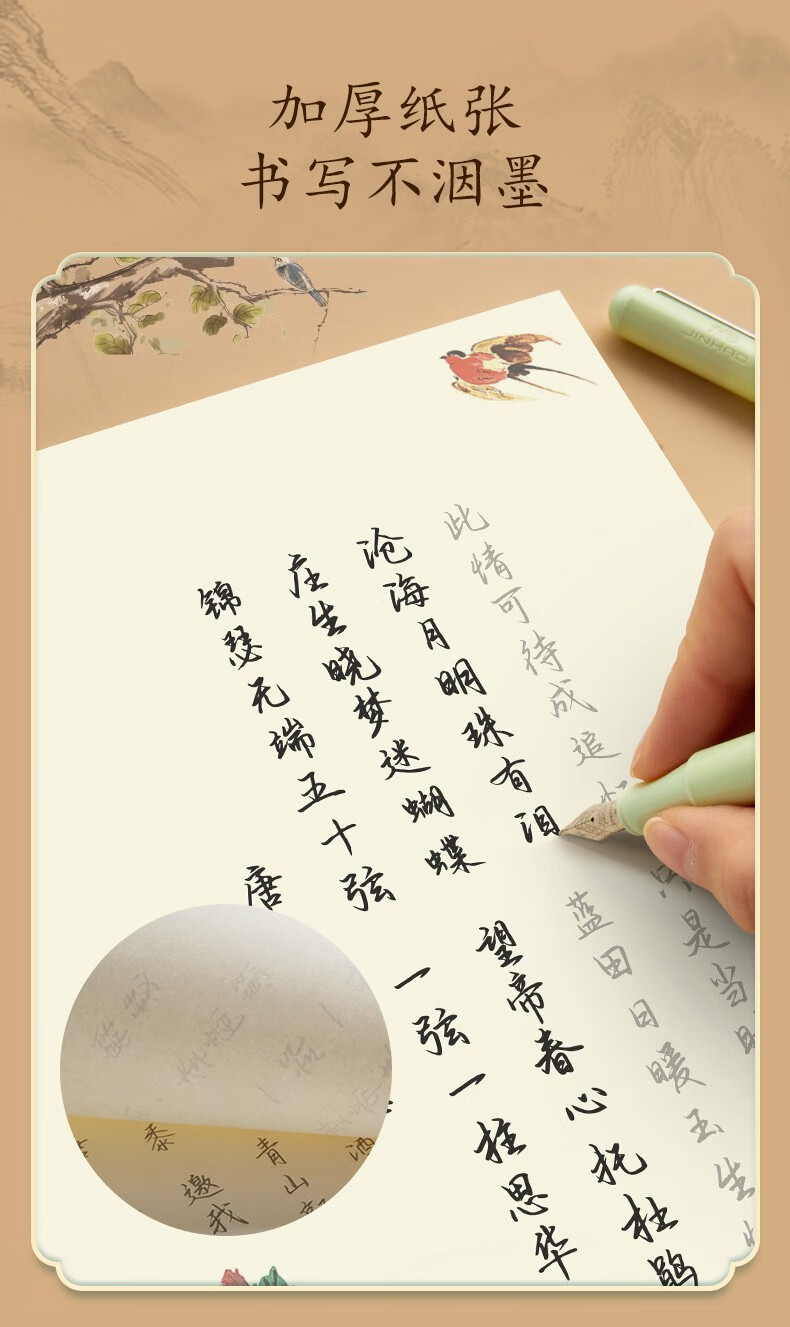 加厚纸张
书写不洇墨
JINHAO
锦瑟无端五十弦
一弦一柱思华
庄生晓梦迷蝴蝶
望帝春心托杜鹃
沧海月明珠有泪
蓝田日暖玉生
此情可待成追
是当时
唐
黍
邀我
青山
酒